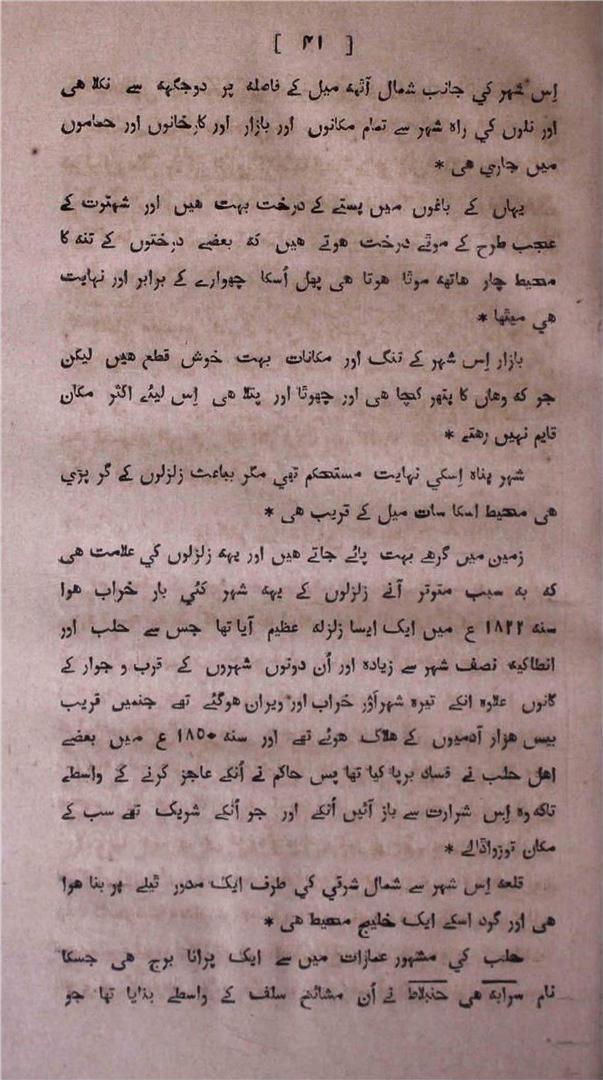 [ ۴۱ ]
اِس شہر کي جانب شمال آٹھہ میل کے فاصلہ پر دوجگہہ سے نکلا هی
اور نلوں کي راہ شہر سے تمام مکانوں اور بازار اور کارخانوں اور حماموں
میں جاري هی *
یہاں کے باغوں میں پستے کے درخت بہت هیں اور شہتوت کے
عجب طرح کے موٹے درخت هوتے هیں کہ بعضے درختوں کے تنہ کا
محیط چار هاتھہ موٹا هوتا هی پھل اُسکا چھوارے کے برابر اور نہایت
هي میٹھا *
بازار اِس شہر کے تنگ اور مکانات بہت خوش قطع هیں لیکن
جو کہ وهاں کا پتھر کچا هی اور چھوٹا اور پتلا هی اِس لیئے اکثر مکان
قایم نہیں رهتے *
شہر پناہ اِسکي نہایت مستحکم تھي مگر بباعث زلزلوں کے گر پڑي
هی محیط اسکا سات میل کے قریب هی *
زمین میں گرهے بہت پائے جاتے هیں اور یہہ زلزلوں کي علامت هی
کہ بہ سبب متوتر آنے زلزلوں کے یہہ شہر کئي بار خراب هوا
سنہ ۱۸۲۲ ع میں ایک ایسا زلزلہ عظیم آیا تھا جس سے حلب اور
انطاکیہ نصف شہر سے زیادہ اور اُن دونوں شہروں کے قرب و جوار کے
گانوں علاوہ انکے تیرہ شہر اَوْر خراب اور ویران هوگئے تھے جنمیں قریب
بیس هزار آدمیوں کے هلاک هوئے تھے اور سنہ ۱۸۵۰ ع میں بعضے
اهل حلب نے فساد برپا کیا تھا پس حاکم نے اُنکے عاجز کرنے کے واسطے
تاکہ وہ اِس شرارت سے باز آئیں اُنکے اور جو اُنکے شریک تھے سب کے
مکان توڑواڈالے *
قلعہ اِس شہر سے شمال شرقي کي طرف ایک مدور ٹیلے پر بنا هوا
هی اور گرد اسکے ایک خلیج محیط هی *
حلب کي مشہور عمارات میں سے ایک پرانا برج هی جسکا
نام سرابہ هی جنبلاط نے اُن مشائخ سلف کے واسطے بنایا تھا جو